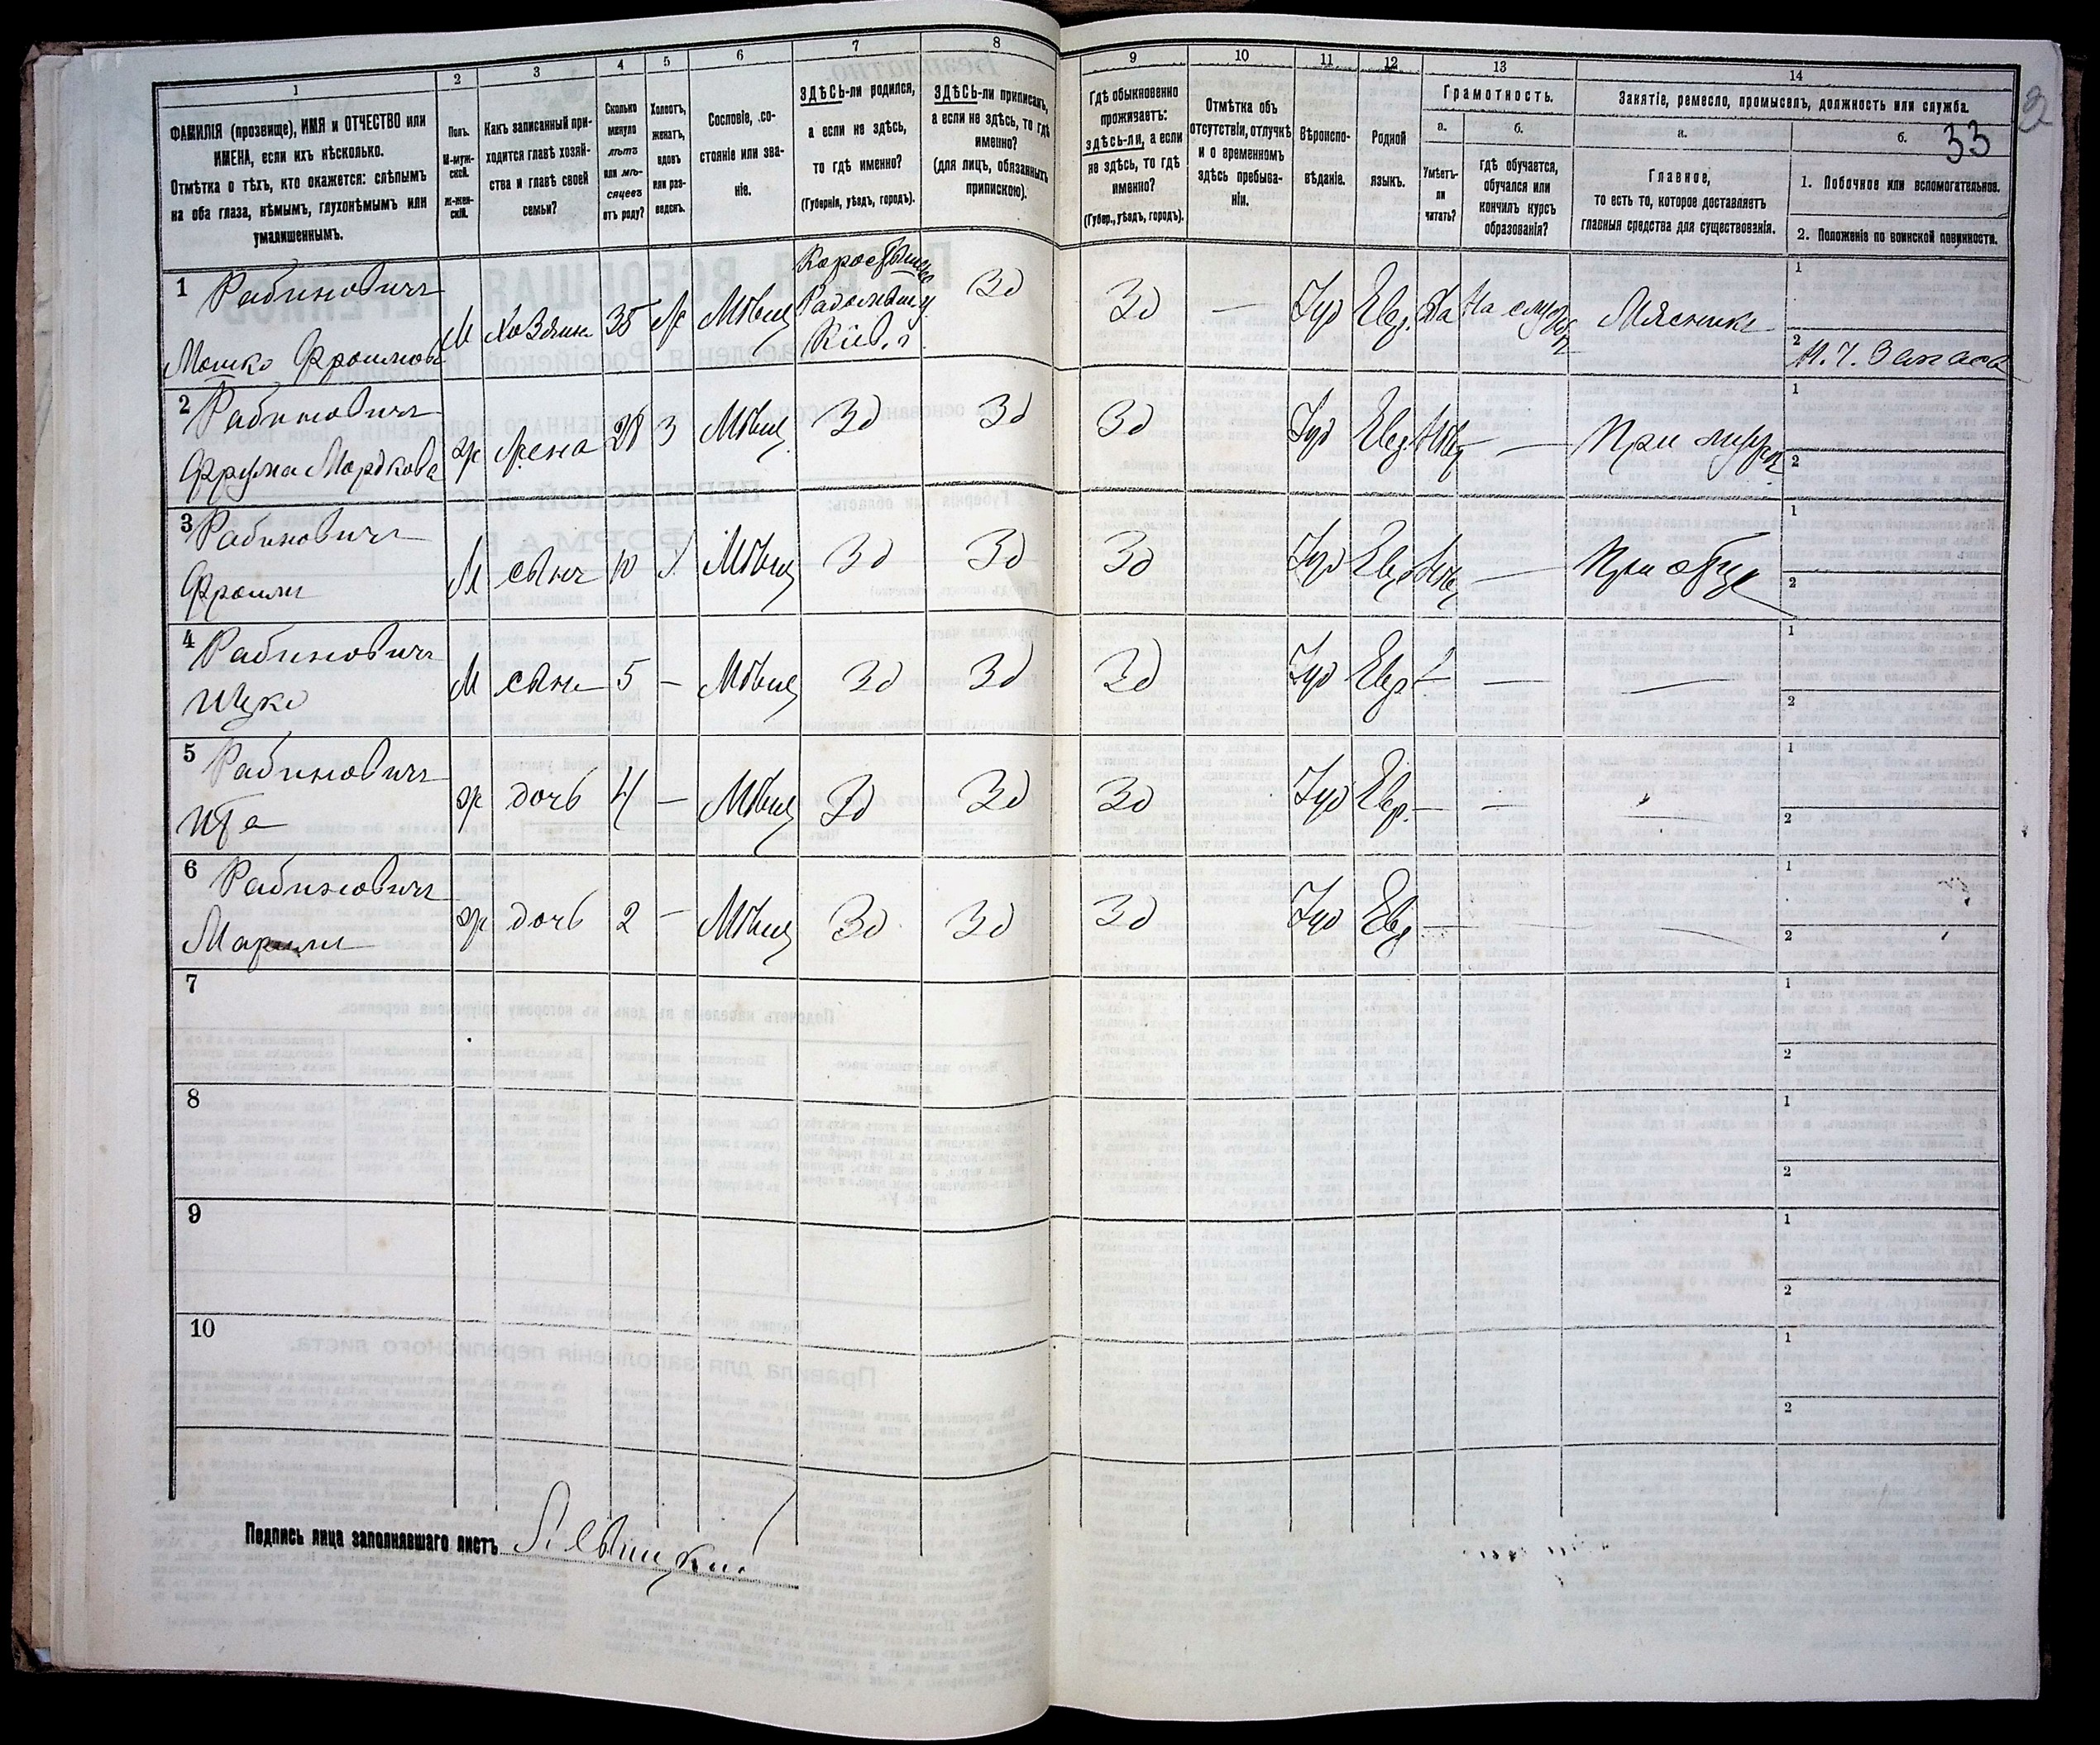 1
2
3
4
5
6
7
8
9
10
11
12
13
14
ФАМИЛІЯ (прозвище), ИМЯ и ОТЧЕСТВО или
ИМЕНА, если ихъ нѣсколько.
Отмѣтка о тѣхъ, кто окажется: слѣпымъ
на оба глаза, нѣмымъ, глухонѣмымъ или
умалишеннымъ.
Полъ.
М-муж-
ской.
Ж-жен-
скій.
Какъ записанный при-
ходится главѣ хозяй-
ства и главѣ своей
семьи?
Сколько
минуло
лѣтъ
или мѣ-
сяцевъ
отъ роду?
Холостъ,
женатъ,
вдовъ
или раз-
веденъ.
Сословіе, со-
стояніе или зва-
ніе.
ЗДѢСЬ-ли родился,
а если не здѣсь,
то гдѣ именно?
(Губернія, уѣздъ, городъ).
ЗДѢСЬ-ли приписанъ,
а если не здѣсь, то гдѣ
именно?
(для лицъ, обязанныхъ
припискою).
Гдѣ обыкновенно
проживаетъ:
здѣсь-ли, а если
не здѣсь, то гдѣ
именно?
(Губер., уѣздъ, городъ).
Отмѣтка объ
отсутствіи, отлучкѣ
и о временномъ
здѣсь пребыва-
ніи.
Вѣроиспо-
вѣданіе.
Родной
языкъ.
Грамотность.
а.
Умѣетъ-
ли
читать?
б.
гдѣ обучается,
обучался или
кончилъ курсъ
образованія?
Занятіе, ремесло, промыселъ, должность или служба.
а.
Главное,
то есть то, которое доставляетъ
главныя средства для существованія.
б.
33
1. Побочное или вспомогательное.
2. Положеніе по воинской повинности.
1 Рабиновичъ
Мошко Фроимов
М Хозяин 35 Ж Мѣщ
Радомышл.
Кіев. г.
Зд Зд — Іуд Евр. Да Мясникъ
1
2
2 Рабиновичъ
Фрума Мордкова
Ж Жена 28 З Мѣщ Зд Зд Зд Іуд Евр. Нѣт — При мужѣ
1
2
3 Рабиновичъ
Фроим
М сынъ 10 Х Мѣщ Зд Зд Зд Іуд Евр Нѣт — При отцѣ
1
2
4 Рабиновичъ
Ицко
М сын 5 — Мѣщ Зд Зд Зд Іуд Евр — — —
1
2
5 Рабиновичъ
Ита
Ж дочь 4 — Мѣщ Зд Зд Зд Іуд Евр. — — —
1
2
6 Рабиновичъ
Ж дочь 2 — Мѣщ Зд Зд Зд Іуд Евр — — —
1
2
7
1
2
8
1
2
9
1
2
10
1
2
Подпись лица заполнявшаго листъ